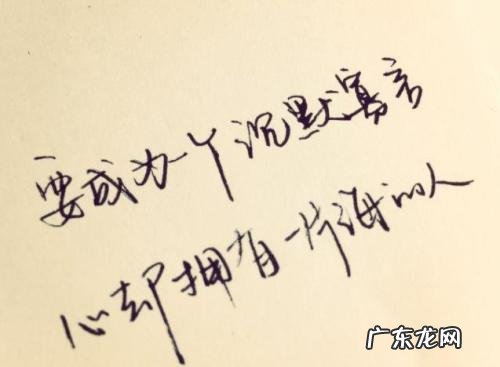 要成为一个沉默寡言
心却拥有一片海的人
广东龙网